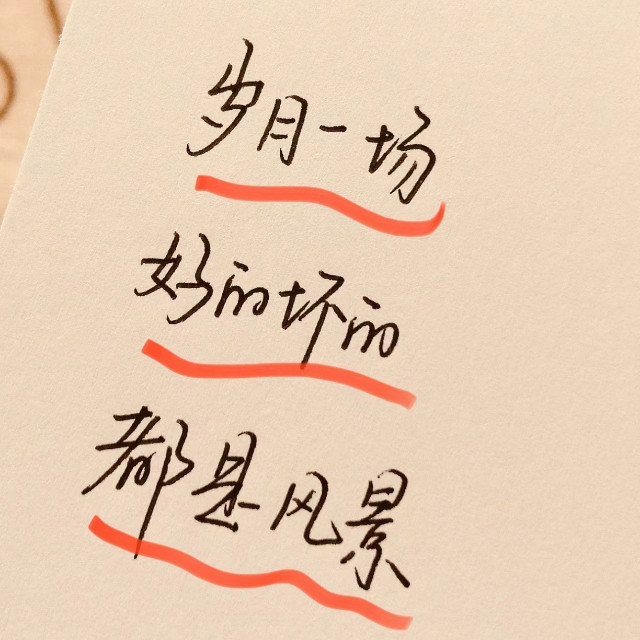 岁月一场
好的坏的
都是风景